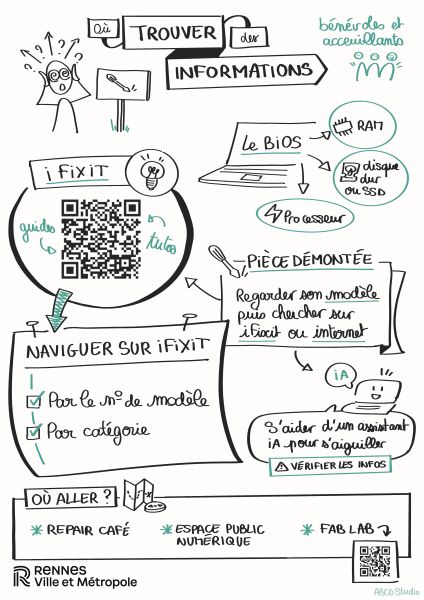 Où
TROUVER
des
INFORMATIONS
bénévoles et
accueillants
Le BiOS
RAM
disque
dur
ou SSD
Processeur
i FiXiT
guides
tutos
PIÈCE DÉMONTÉE
Regarder son modèle
puis chercher sur
iFixit ou internet
NAVIGUER SUR iFiXiT
Par le n° de modèle
Par catégorie
iA
S'aider d'un assistant
iA pour s'aiguiller
VÉRIFIER LES INFOS
OÙ ALLER ?
REPAIR CAFÉ
ESPACE PUBLIC
NUMÉRIQUE
FAB LAB
RENNES
Ville et Métropole
ABCD Studio